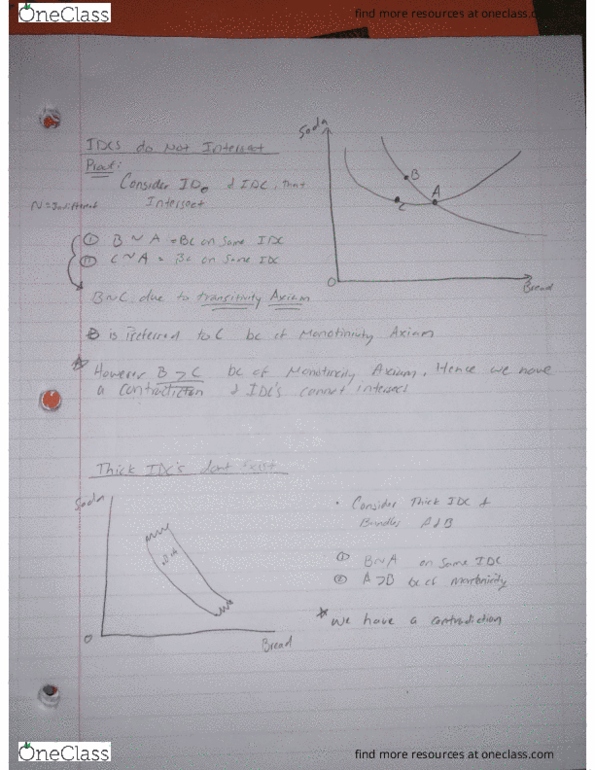 OneClass
find more resources at oneclass.com
IDCS do Not Intersect
Proof:
Consider ID₀ & IDC, that
Intersect
N = Indifferent
① B ~ A → Bc on Same IDC
② C ~ A → Bc on Same IDC
B~C due to transitivity Axiom
B is Preferred to C bc of Monotinicity Axium
However B > C bc of Monoticity Axium. Hence we have
a contradiction & IDC's cannot intersect
Soda
B
A
C
O
Bread
Thick IDC's dont Exist
Soda
O
Bread
• Consider Thick IDC &
Bundles A & B
① B~A on Same IDC
② A > B bc of
* we have a contradiction
OneClass
find more resources at oneclass.com